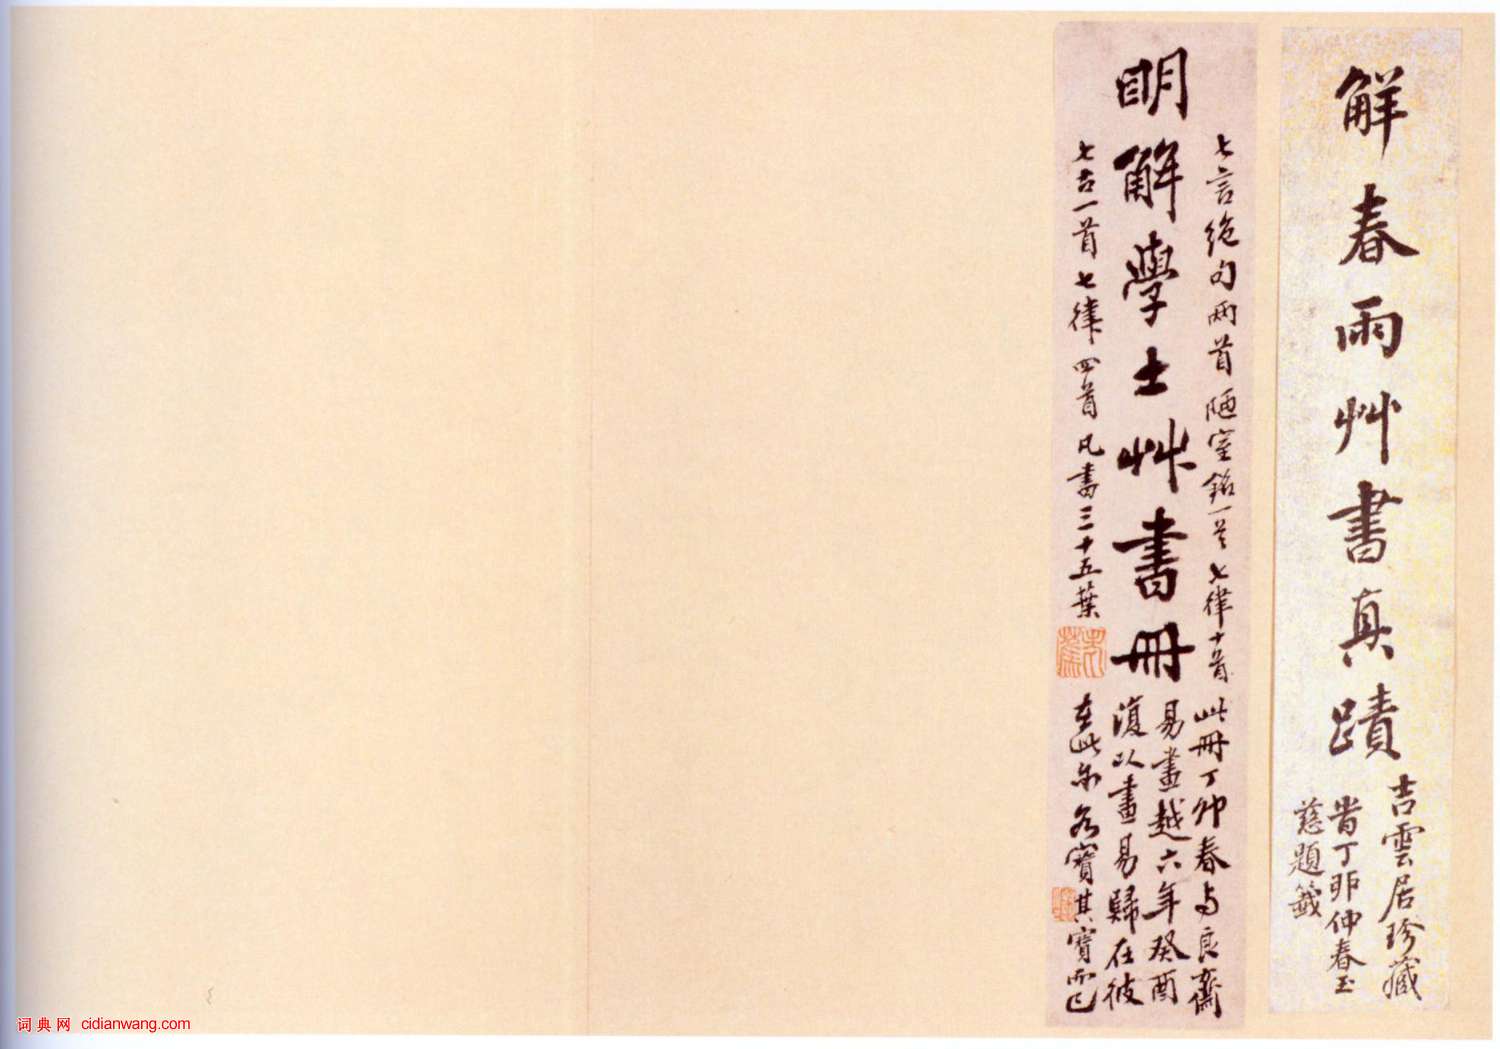 解春雨艸書真蹟
吉雲居珍藏
旹丁卯仲春玉
慈題籤
七言絶句兩首陋室銘一首七律十首
明解學士艸書冊
七古一首七律四首凡書三十五葉
此冊丁卯春与良齋
易畫越六年癸酉
復以畫易歸在彼
在此亦各寶其寶而已
词典网 cidianwang.com